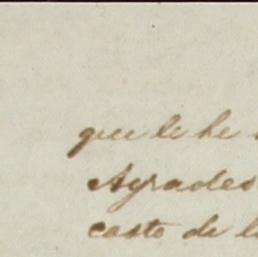 que le he
Agradec
caste de l